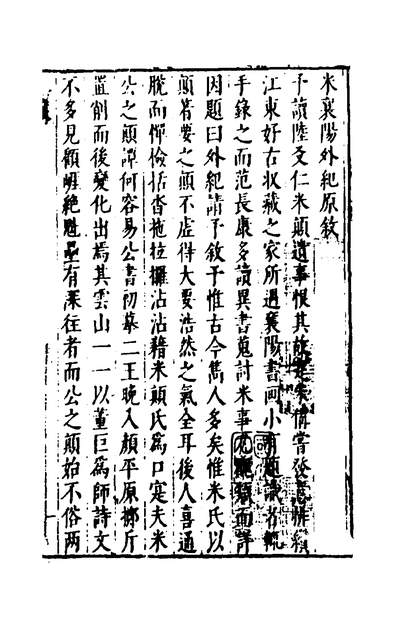 米襄陽外紀原敘
予讀陸友仁米顛遺事恨其故實未備嘗發意耕
江東好古収藏之家所遇襄陽書画小有題識者輒
手錄之而范長康多讀異書蒐討米事尤詳
因題曰外紀請予敘予惟古今雋人多矣惟米氏以
顛著要之顛不虛得大要浩然之氣全耳後人喜通
脫而憚檢括沓拖拉攞沾沾藉米顛氏爲口寔夫米
公之顛譚何容易公書初摹二王晚入顏平原擲斤
置削而後變化出焉其雲山一一以董巨爲師詩文
不多見顧崖絕魁壘有深往者而公之顛始不俗兩